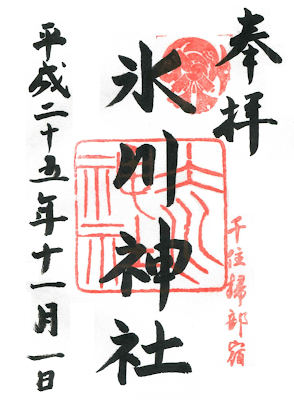 奉拝
千住掃部宿
氷川神社
平成二十五年十一月一日